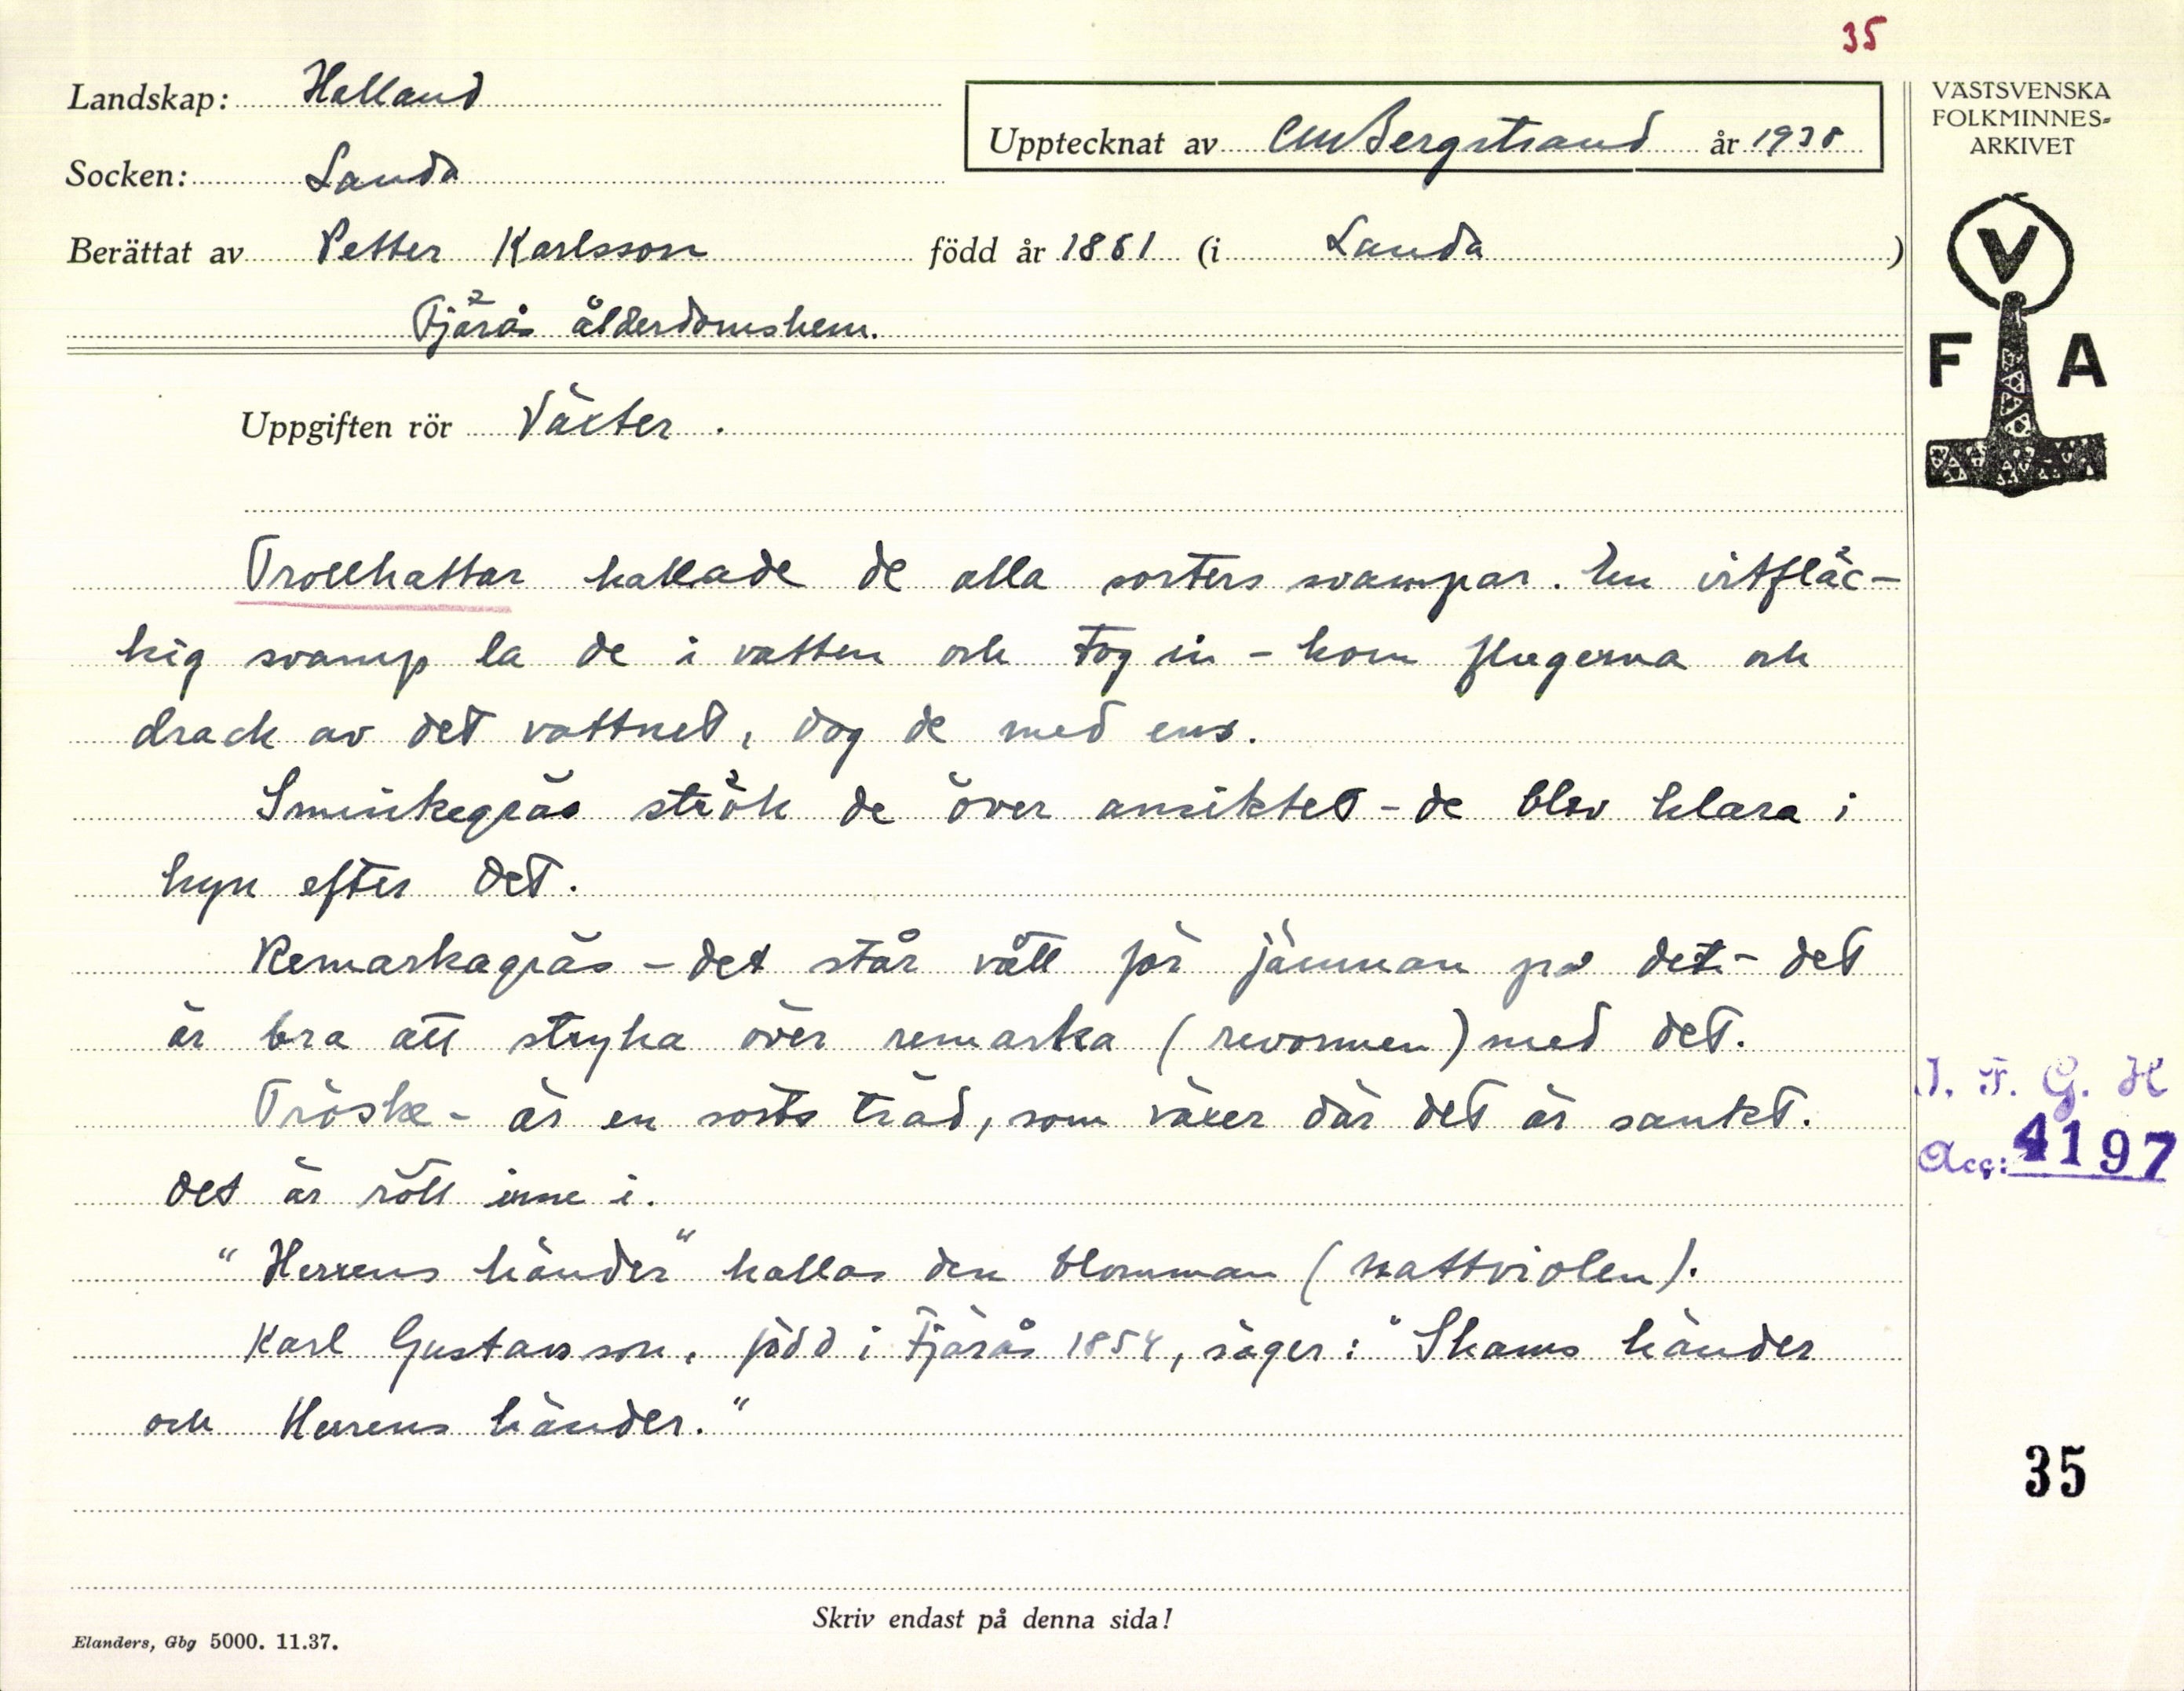 35
Landskap: Halland
VÄSTSVENSKA
FOLKMINNES-
ARKIVET
Upptecknat av CM Bergstrand år 1938
Socken: Landa
Berättat av Petter Karlsson född år 1861 (i Landa)
Fjärås ålderdomshem.
V
F A
Uppgiften rör Växter.
Trollhattar kallade de alla sorters svampar. En vitfläc-
kig svamp la de i vatten och tog in - kom flugerna och
drack av det vattnet, dog de med ens.
Sminkegräs strök de över ansiktet - de blev klara i
hyn efter det.
Remarkagräs - det står vått för jämnan på det - det
är bra att stryka över remarka (revormen) med det.
Tröske - är en sorts träd, som växer där det är sankt.
det är rött inne i.
"Herrens händer" kallas den blomman (nattviolen).
Karl Gustavsson, född i Fjärås 1854, säger: "Skams händer
och Herrens händer."
I. F. G. H
Acc: 4197
35
Skriv endast på denna sida!
Elanders, Gbg 5000. 11.37.